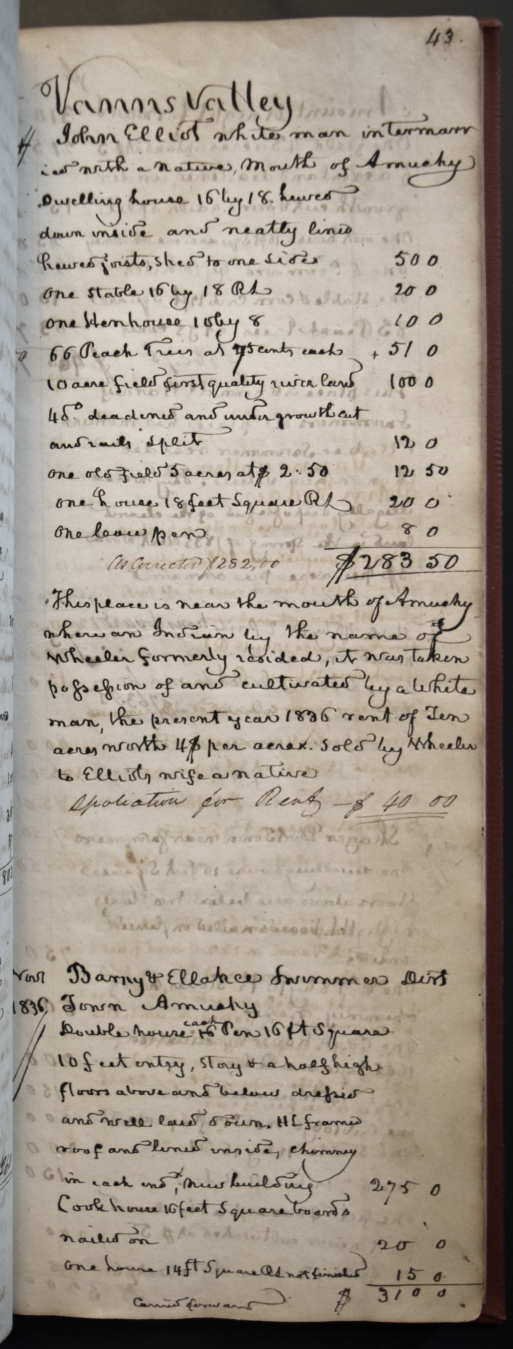 43.
Vanns Valley
John Elliot white man intermarr
ied with a Native, Mouth of Amuchy
Dwelling house 16 by 18. hewed
down inside and neatly lined
hewed joists, shed to one side 50 0
One Stable 16 by 18 RL 20 0
One Henhouse 10 by 8 10 0
66 Peach Trees at 75 cents each 51 0
10 acre field first quality river land 100 0
4 do deadened and undergrowth cut
and rails split 12 0
One old field 5 acres at $ 2.50 12 50
One house 18 feet Square RL 20 0
One pen 8 0
As Corrected $282,00 $283 50
This place is near the mouth of Amuchy
where an Indian by the name of
Wheeler formerly resided, it was taken
possession of and cultivated by a White
man, the present year 1836 rent of Ten
acres worth 4$ per acre. Sold by Wheeler
to Elliots wife a native
Spoliation for Rent $ 40 00
Novr Barny & Ellakee Swimmer Dirt
1836 Town Amuchy
Double house each Pen 16 ft Square
10 feet entry, Story & a half high
floors above and below dressed
and well laid down. HL framed
roof and lined inside, chimney
in each end, New building 275 0
Cook house 16 feet Square boards
nailed on 20 0
One house 14 ft Square RL not finished 15 0
Carried forward $ 310 0